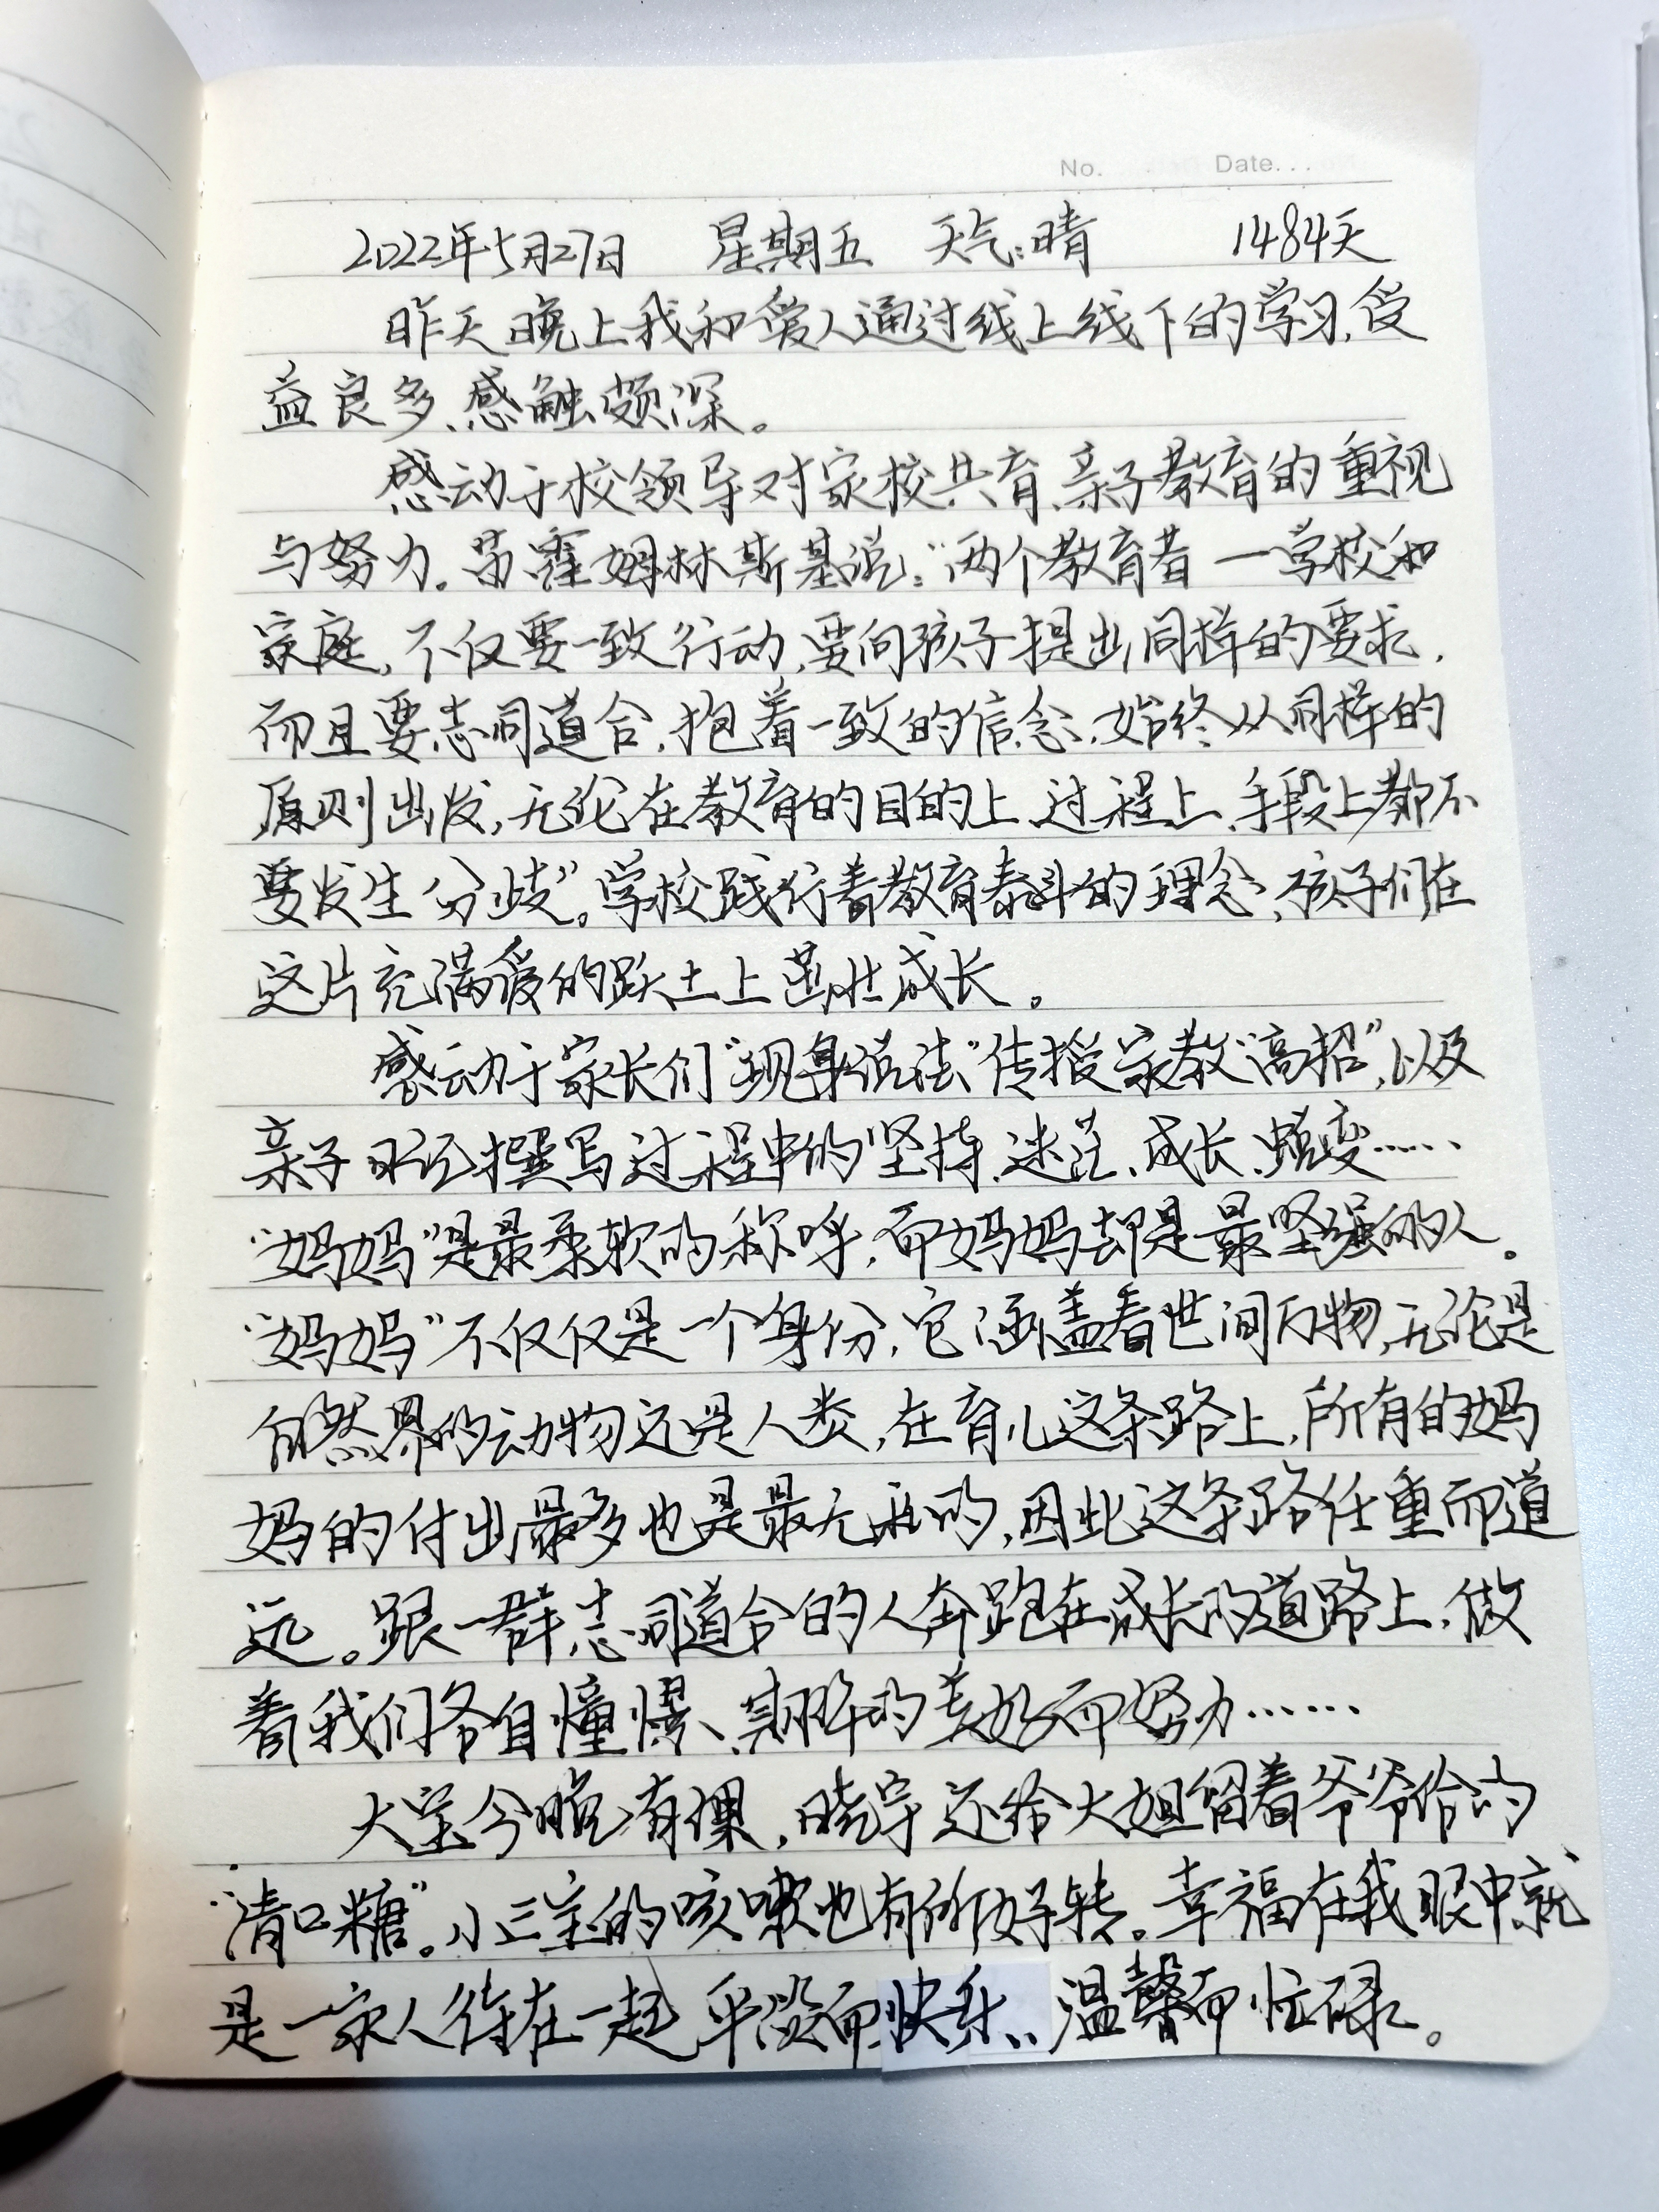 No. Date...
2022年5月27日 星期五 天气:晴 1484天
昨天晚上我和爱人通过线上线下的学习,受
益良多、感触颇深。
感动于校领导对家校共育、亲子教育的重视
与努力。苏霍姆林斯基说:“两个教育者一学校和
家庭,不仅要一致行动,要向孩子提出同样的要求,
而且要志同道合,抱着一致的信念,始终从同样的
原则出发,无论在教育的目的上、过程上、手段上都不
要发生分歧”。学校践行着教育泰斗的理念,孩子们在
这片充满爱的跃土上茁壮成长。
感动于家长们“现身说法”传授家教“高招”,以及
亲子日记撰写过程中的坚持、迷茫、成长、蜕变……
“妈妈”是最柔软的称呼,而妈妈却是最坚强的人。
“妈妈”不仅仅是一个身份,它涵盖着世间万物,无论是
自然界的动物还是人类,在育儿这条路上,所有的妈
妈的付出最多也是最无私的,因此这条路任重而道
远。跟一群志同道合的人奔跑在成长的道路上,做
着我们各自憧憬、期盼的美好而努力……
大宝今晚有课,晓宇还给大姐留着爷爷给的
“清口糖”。小三宝的咳嗽也有所好转。幸福在我眼中就
是一家人待在一起,平淡而快乐、温馨而忙碌。